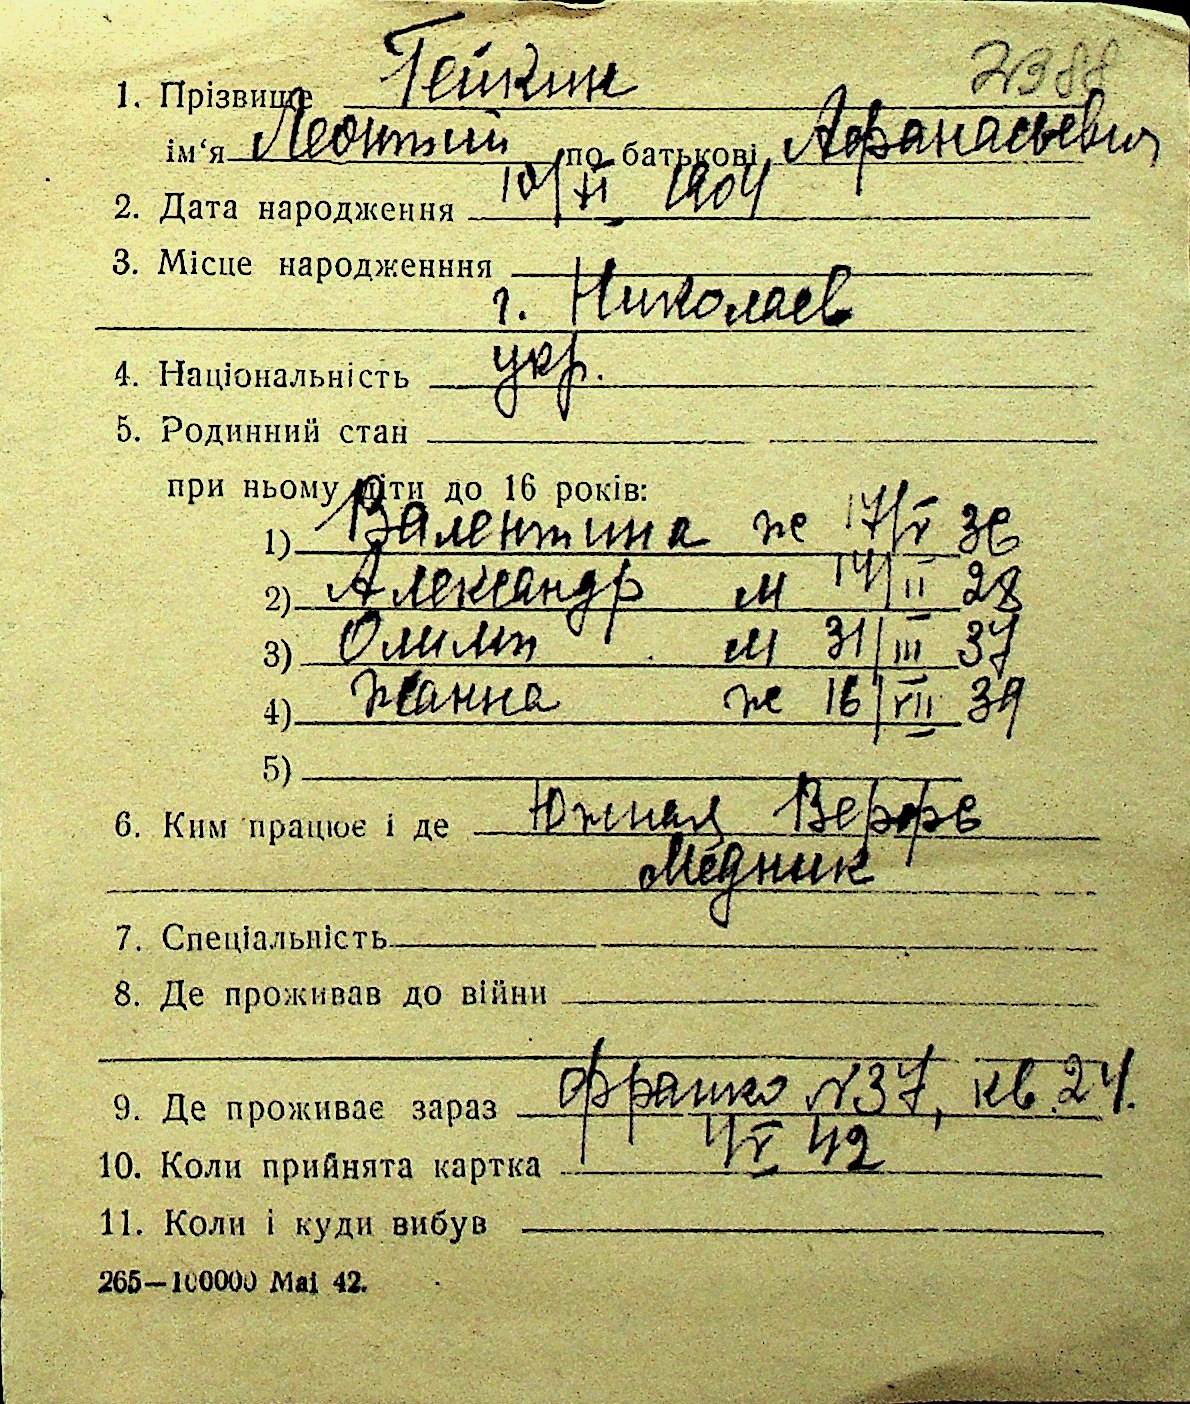 2388
1. Прізвище Гейкин
ім‘я Леонтий по батькові Афанасьевич
2. Дата народження 10/XI 1904
3. Місце народженння
г. Николаев
4. Національність укр.
5. Родинний стан
при ньому діти до 16 років:
1) Валентина ж 17/V 36
2) Александр м 14/II 28
3) Олимп м 31/III 37
4) Жанна ж 16/VII 39
5)
6. Ким працює і де Южная Верфь
Медник
7. Спеціальність
8. Де проживав до війни
9. Де проживає зараз Франко №37, кв. 24.
10. Коли прийнята картка 4/V 42
11. Коли і куди вибув
265—100000 Mai 42.